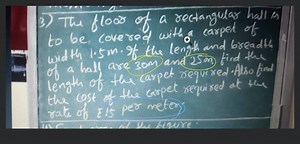 3) The floor of a rectangular hall is
to be covered with carpet of
width 1.5m. If the length and breadth
of a hall are 30m and 25m find the
length of the carpet required. Also find
the cost of the carpet required at the
rate of £15 per meter.
of the figure